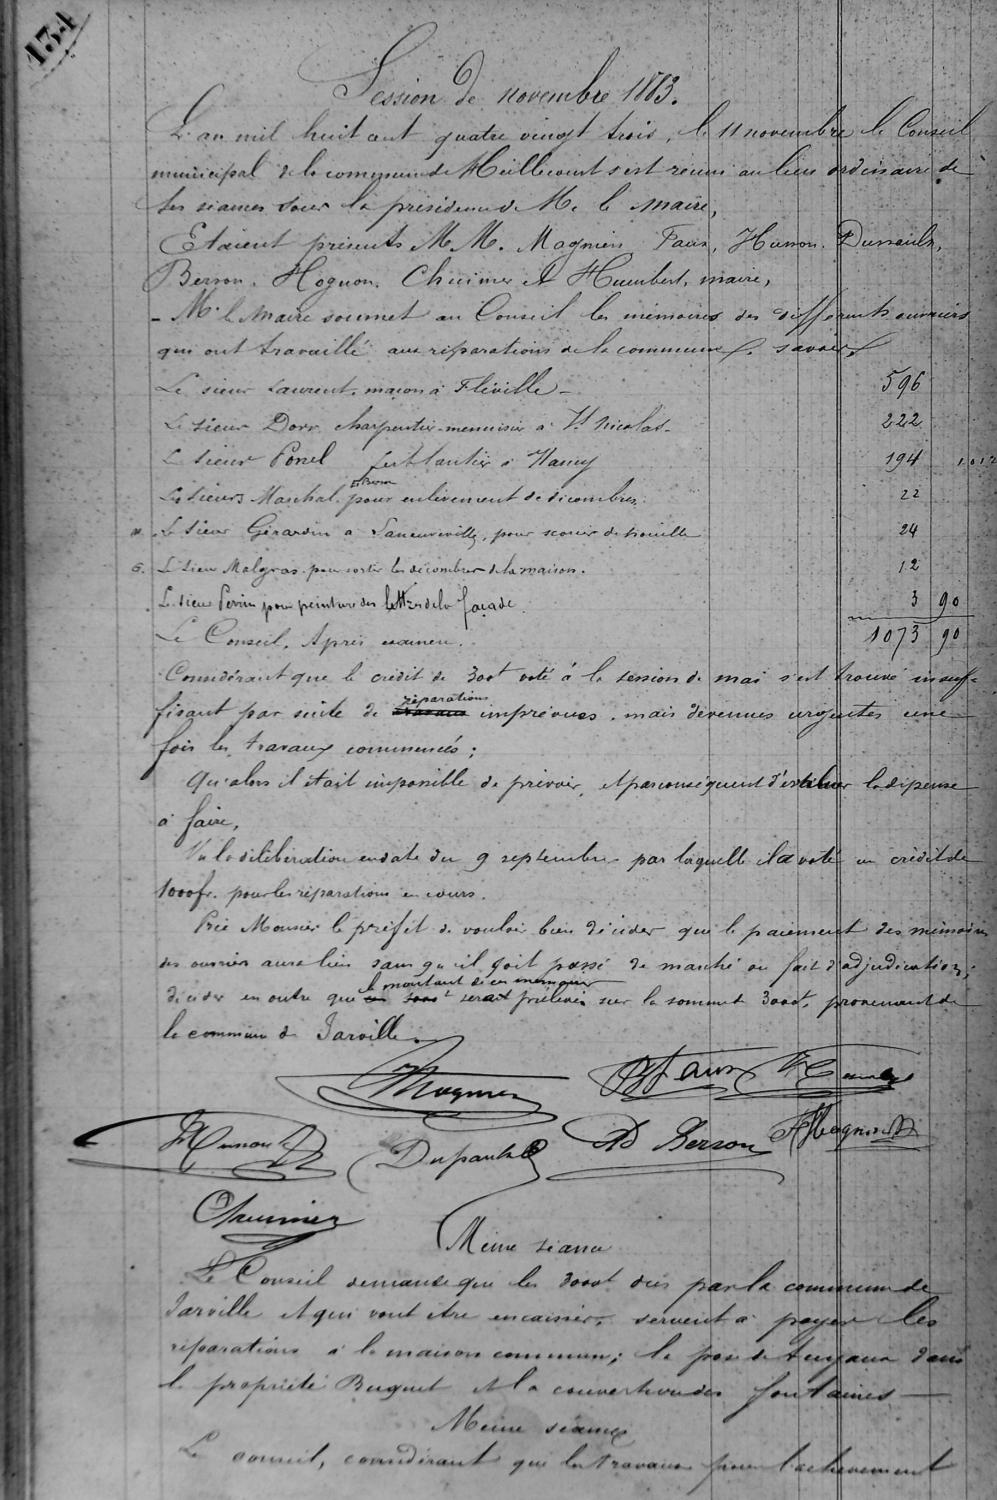 134
Session de novembre 1883.
L'an mil huit cent quatre vingt trois, le 11 novembre le Conseil
municipal de la commune de Heillecourt s'est réuni au lieu ordinaire de
ses séances sous la présidence de M. le Maire,
Etaient présents M.M. Magnien, Faux, Husson, Dupaulx,
Berson, Hognon, Chuimer et Humbert, maire,
- M. le Maire soumet au Conseil les mémoires des différents ouvriers
qui ont travaillé aux réparations de la commune, savoir
Le sieur Laurent, maçon à Fléville - 596
Le sieur Dorr, charpentier-menuisier à St Nicolas - 222
Le sieur Ponel ferblantier à Nancy 194 1012
Les sieurs Marchal et Husson pour enlèvement de décombres. 22
Le sieur Gérardin à Laneuveville, pour scories de houille 24
6. Le sieur Malgras pour sortir les décombres de la maison. 12
Le sieur Perrin pour peinture des lettres de la façade. 3 90
Le Conseil, Après examen. 1073 90
Considérant que le crédit de 300f voté à la session de mai s'est trouvé insuf-
fisant par suite de travaux réparations imprévues, mais devenues urgentes une
fois les travaux commencés;
Qu'alors il était impossible de prévoir, et par conséquent d'évaluer la dépense
à faire,
Vu la délibération en date du 9 septembre par laquelle il a voté un crédit de
1000f. pour les réparations en cours.
Prie Monsieur le préfet de vouloir bien décider que le paiement des mémoires
des ouvriers aura lieu sans qu'il soit passé de marché ou fait d'adjudication;
décider en outre que le montant de ces mémoires serait prélevé sur la somme de 3000f, provenant de
la commune de Jarville.
Magnien Faux Humbert
Husson Dupaulx Berson Hognon
Chuimer
Même séance
Le Conseil demande que les 3000f dûs par la commune de
Jarville et qui vont être encaissés, servent à payer les
réparations à la maison commune; la pose de tuyaux dans
la propriété Buquet et la couverture des fontaines -
Même séance
Le conseil, considérant que les travaux pour l'achèvement